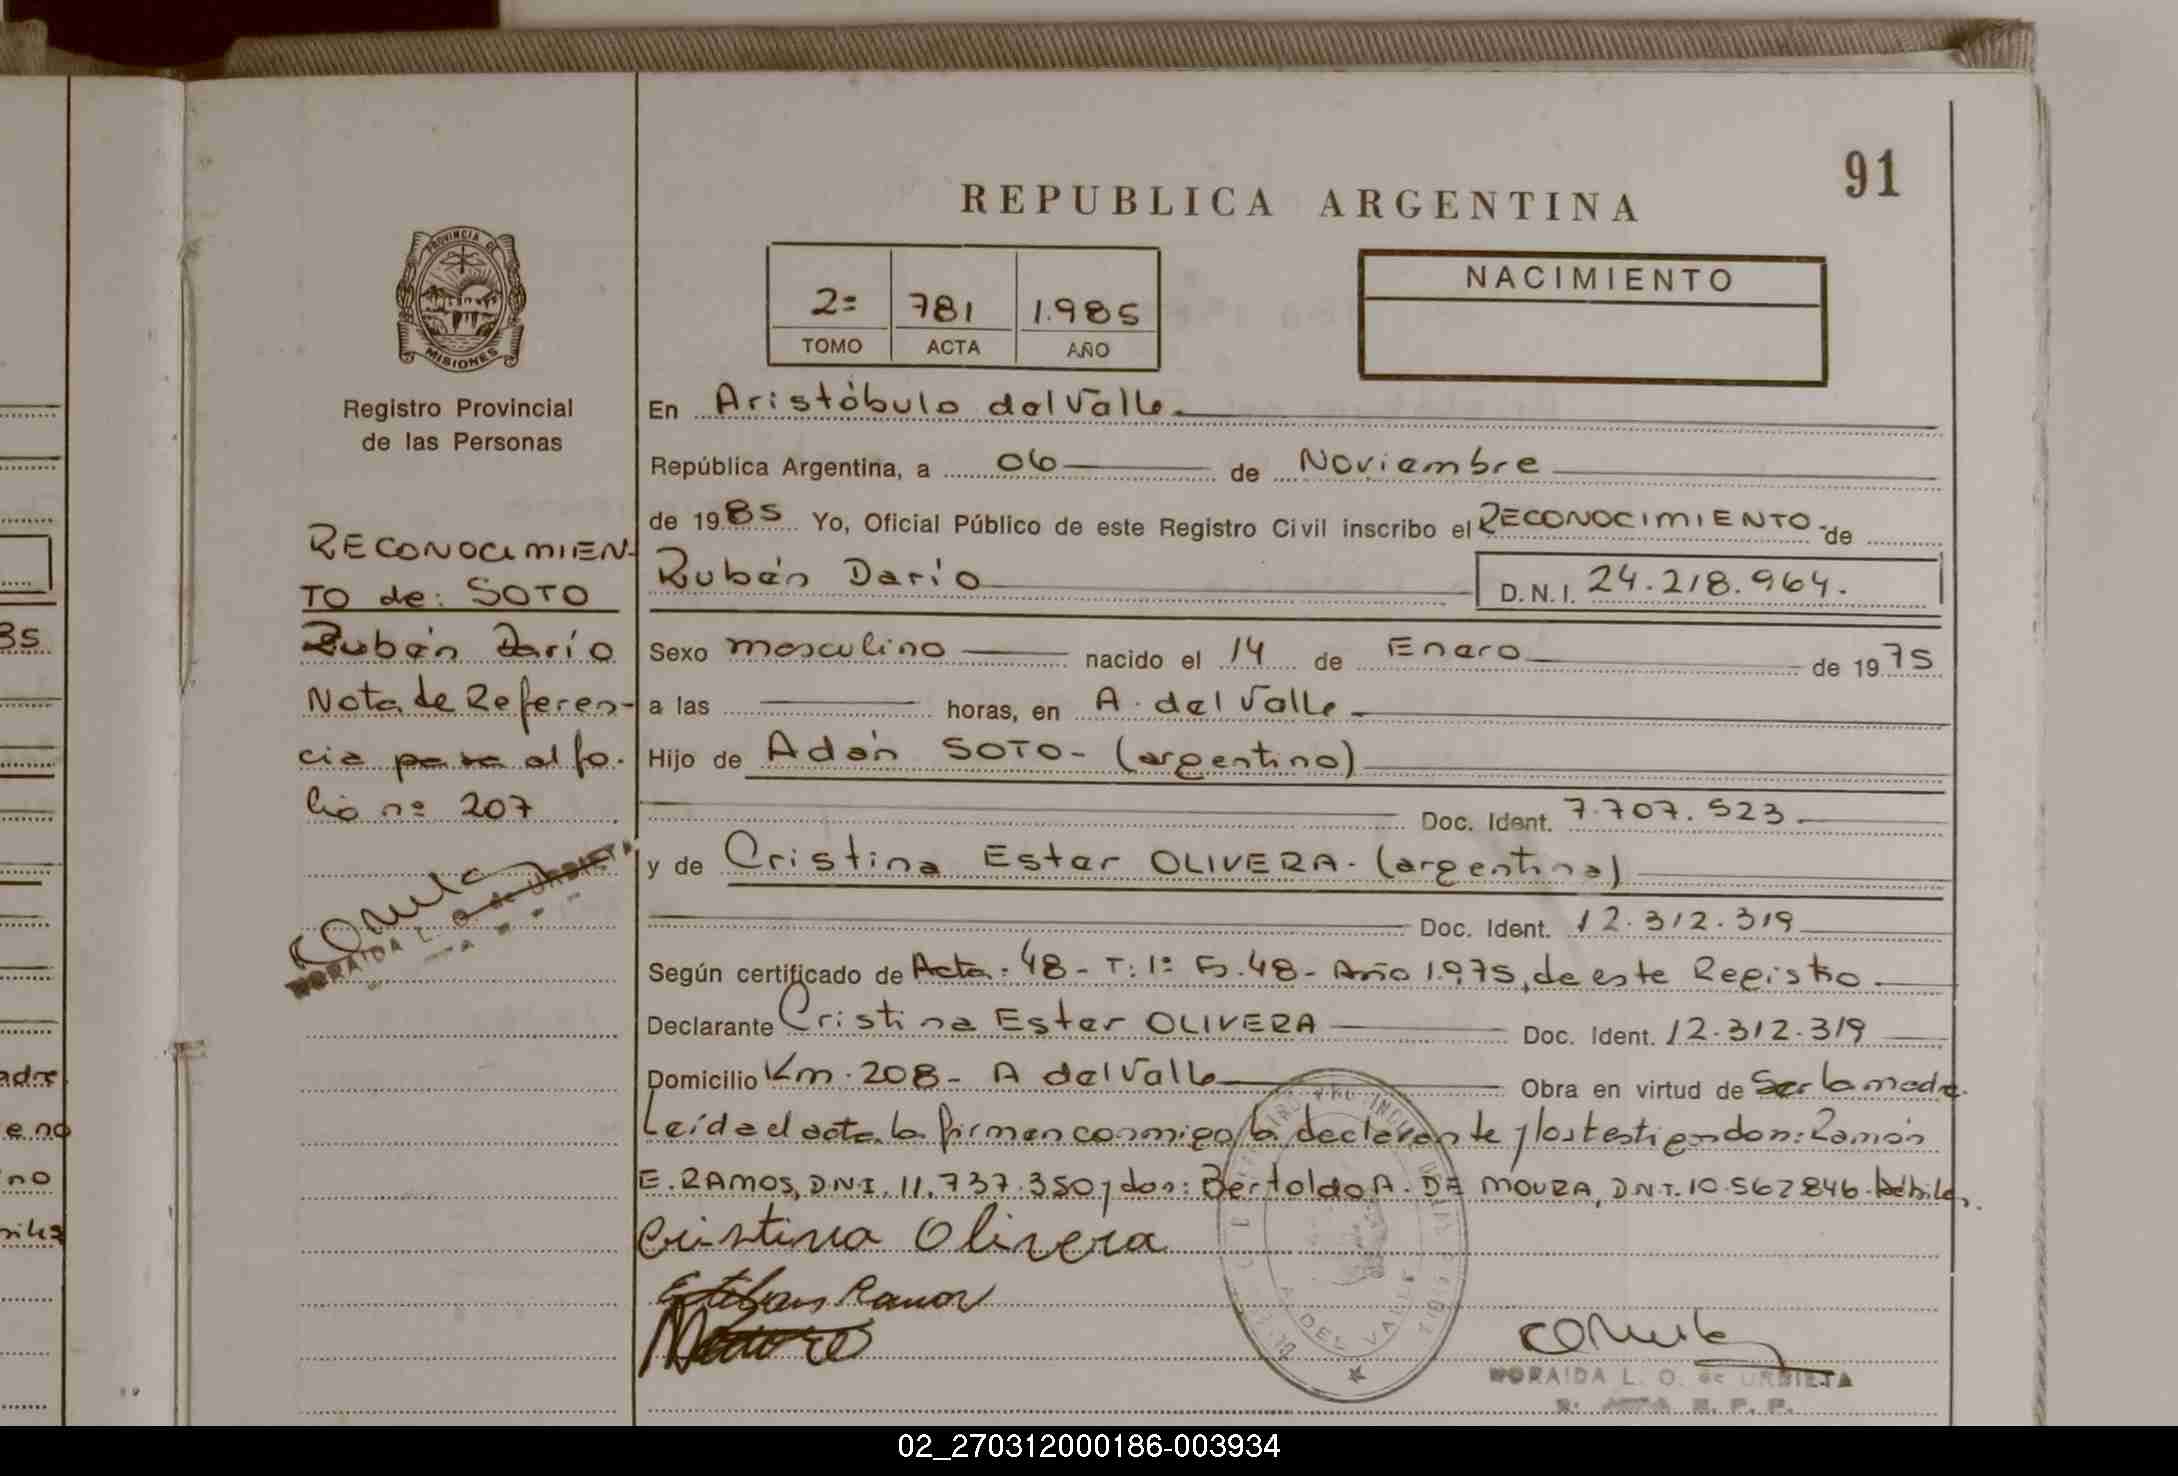 91
REPUBLICA ARGENTINA
PROVINCIA DE
MISIONES
Registro Provincial
de las Personas
2º 781 1.985
TOMO ACTA AÑO
NACIMIENTO
En Aristóbulo del Valle
República Argentina, a 06 de Noviembre
de 1985 Yo, Oficial Público de este Registro Civil inscribo el RECONOCIMIENTO de
Rubén Darío D.N.I. 24.218.964.
Sexo masculino nacido el 14 de Enero de 1975
a las horas, en A. del Valle
Hijo de Adán SOTO- (argentino)
Doc. Ident. 7.707.523
y de Cristina Ester OLIVERA- (argentina)
Doc. Ident. 12.312.319
Según certificado de Acta: 48- T: 1º Fº.48- Año 1.975, de este Registro
Declarante Cristina Ester OLIVERA Doc. Ident. 12.312.319
Domicilio Km. 208- A del Valle Obra en virtud de Ser la madre.
Leída el acta la firman conmigo la declarante y los testigos don: Ramón
E. RAMOS, D.N.I. 11.737.350 y don: Bertoldo A. DE MOURA, D.N.I. 10.562.846. hábiles.
Cristina Olivera
Esteban Ramos
A. DEL VALLE
NORAIDA L. O. de URBIETA
RECONOCIMIEN-
TO de: SOTO
Rubén Darío
Nota de Referen-
cia pasa al fo-
lio nº 207
NORAIDA L. O. de URBIETA
35
adre
eno
no
02_270312000186-003934